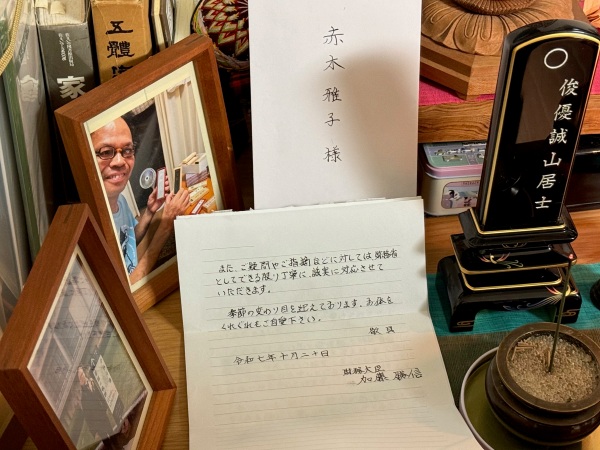 赤木雅子様
また、ご疑問やご指摘などに対しては、財務省
としてできる限り丁寧に、誠実に対応させて
いただきます。
季節の変わり目を迎えております。お体を
くれぐれもご自愛下さい。
敬具
令和七年十月二十日
財務大臣
加藤勝信
俊優誠山居士
五體
家